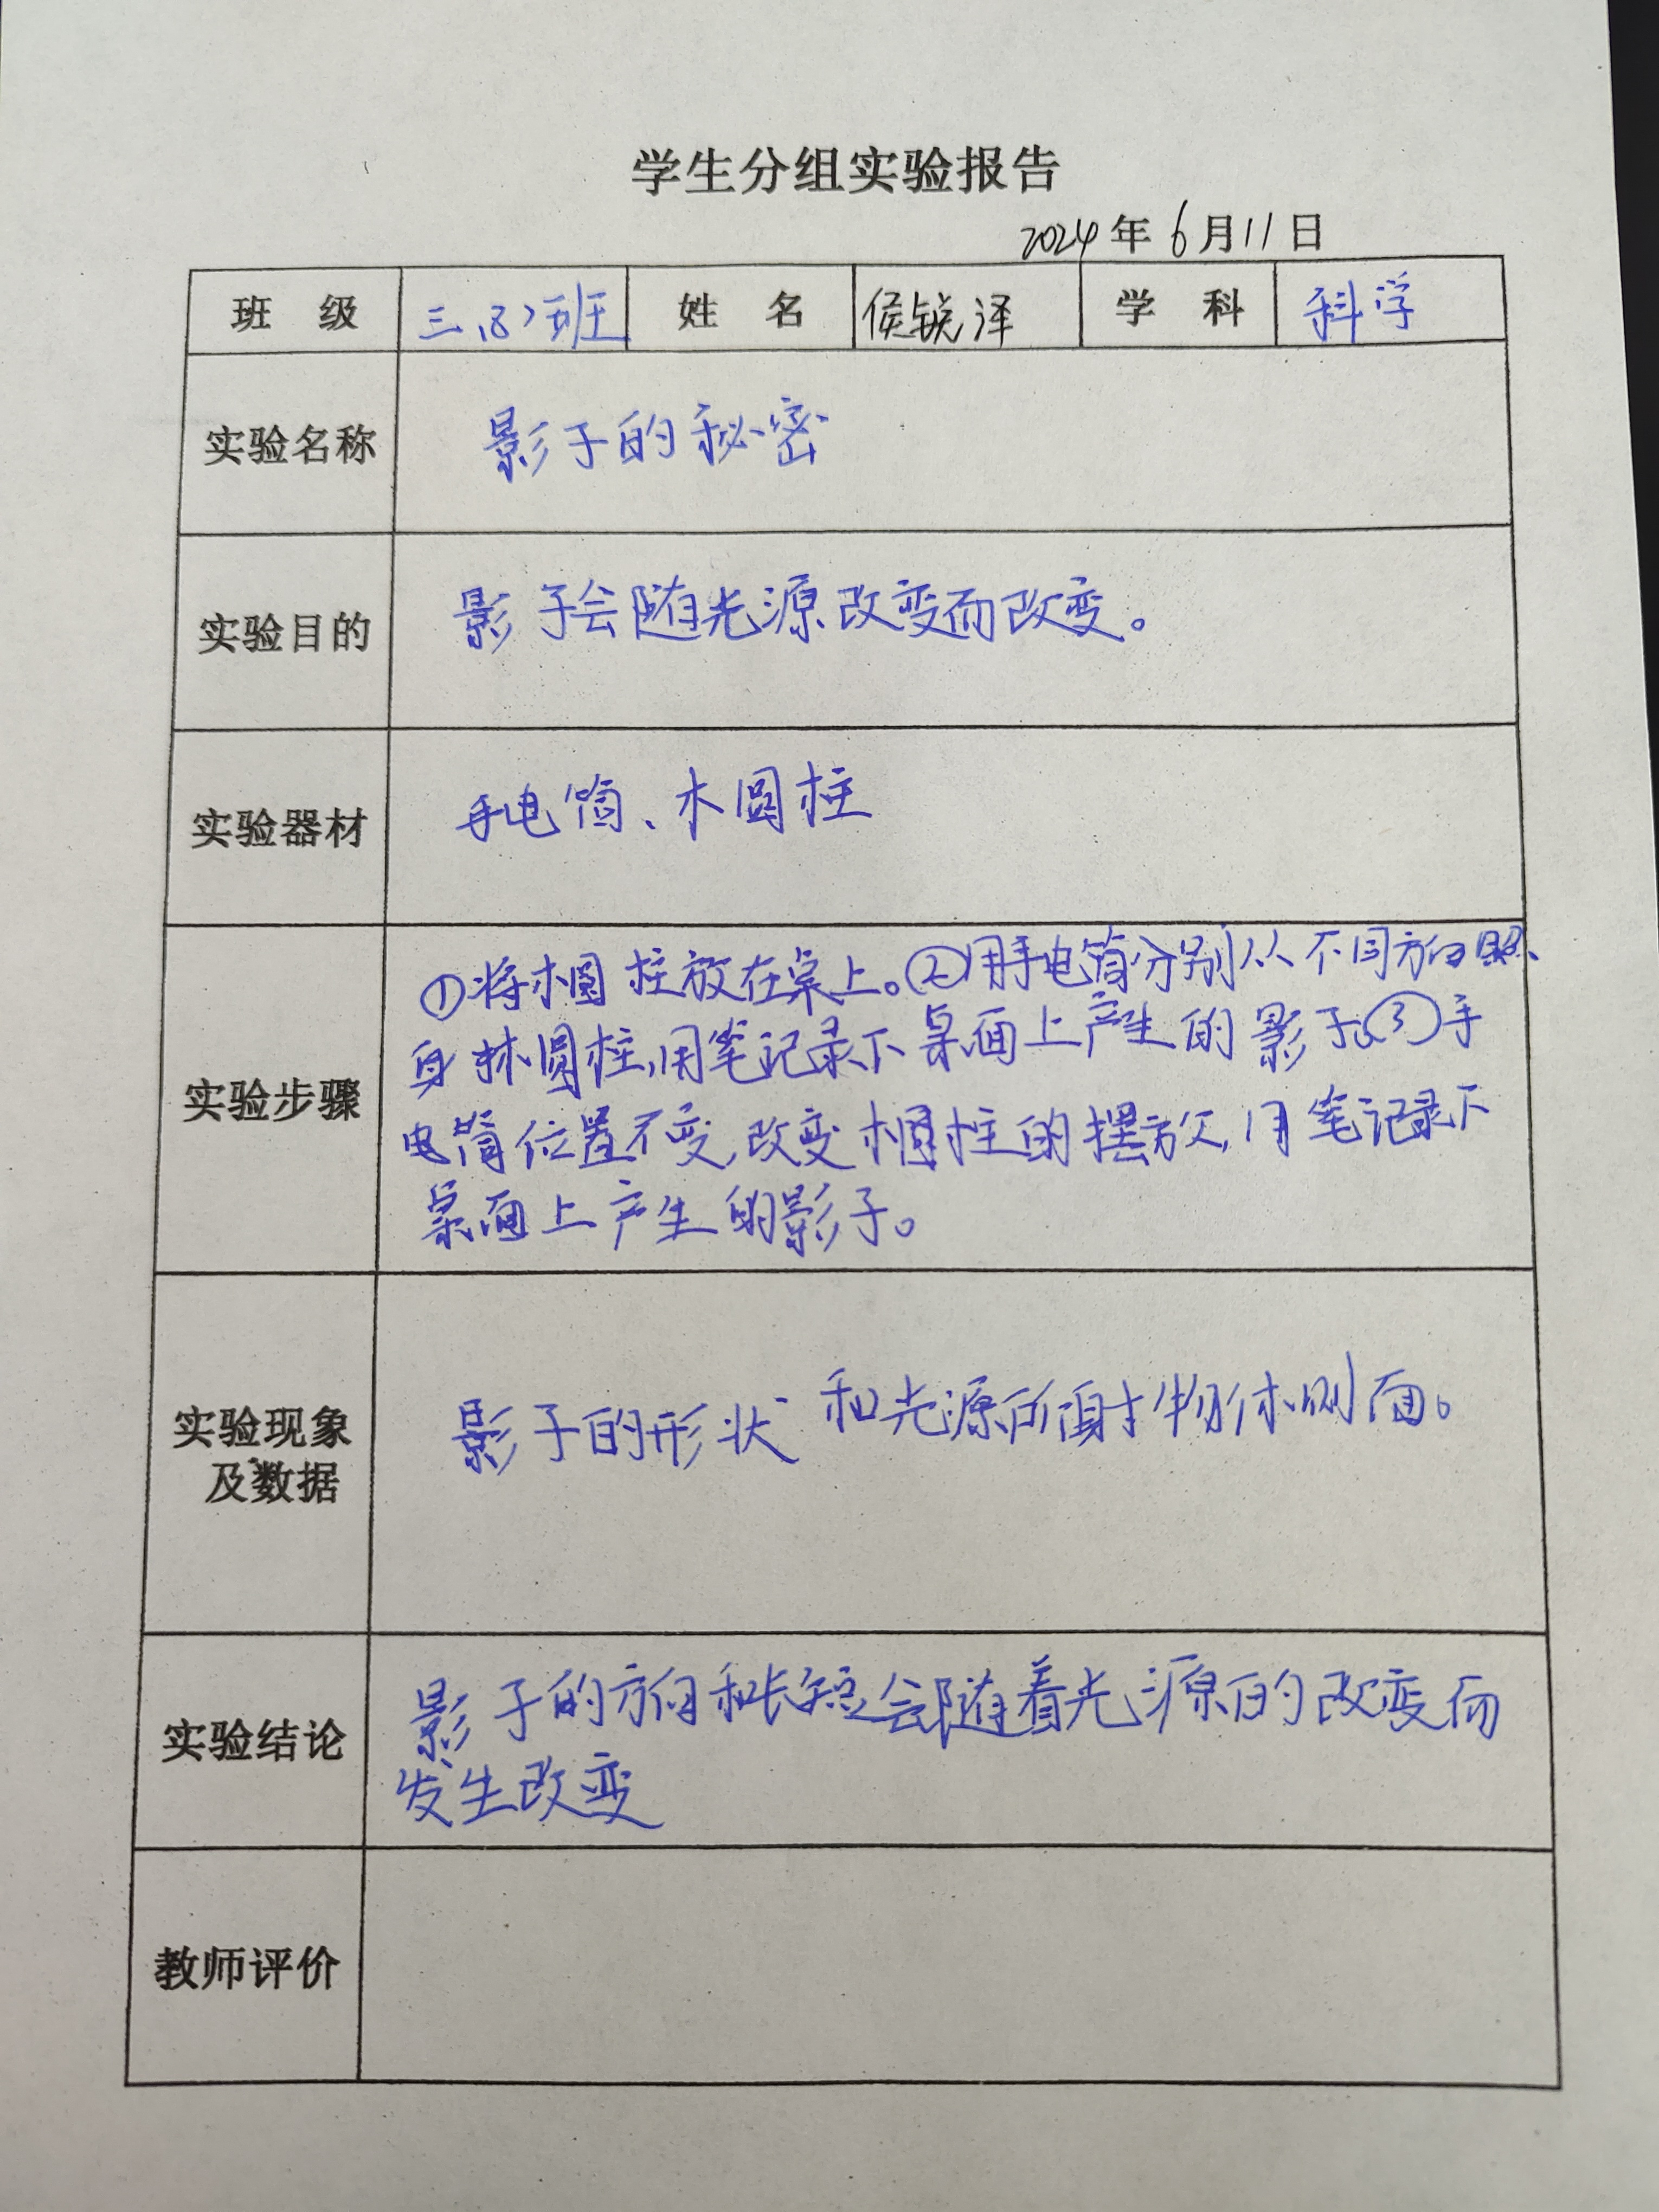 学生分组实验报告
2024年6月11日
班 级 三、(8)班 姓 名 侯锐泽 学 科 科学
实验名称 影子的秘密
实验目的 影子会随光源改变而改变。
实验器材 手电筒、木圆柱
实验步骤
①将木圆柱放在桌上。②用手电筒分别从不同方向照
射木圆柱,用笔记录下桌面上产生的影子。③手
电筒位置不变,改变木圆柱的摆放,用笔记录下
桌面上产生的影子。
实验现象
及数据
影子的形状和光源所射物体侧面。
实验结论
影子的方向和长短会随着光源的改变而
发生改变
教师评价